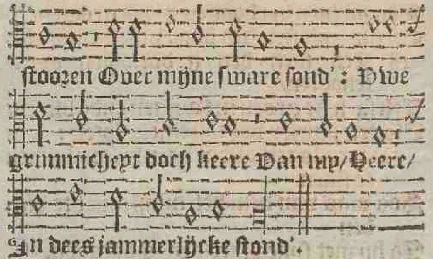 stooren Over mijne sware sond': Uwe
grimmicheyt doch keere Van my/Heere/
In dees jammerlijcke stond'.